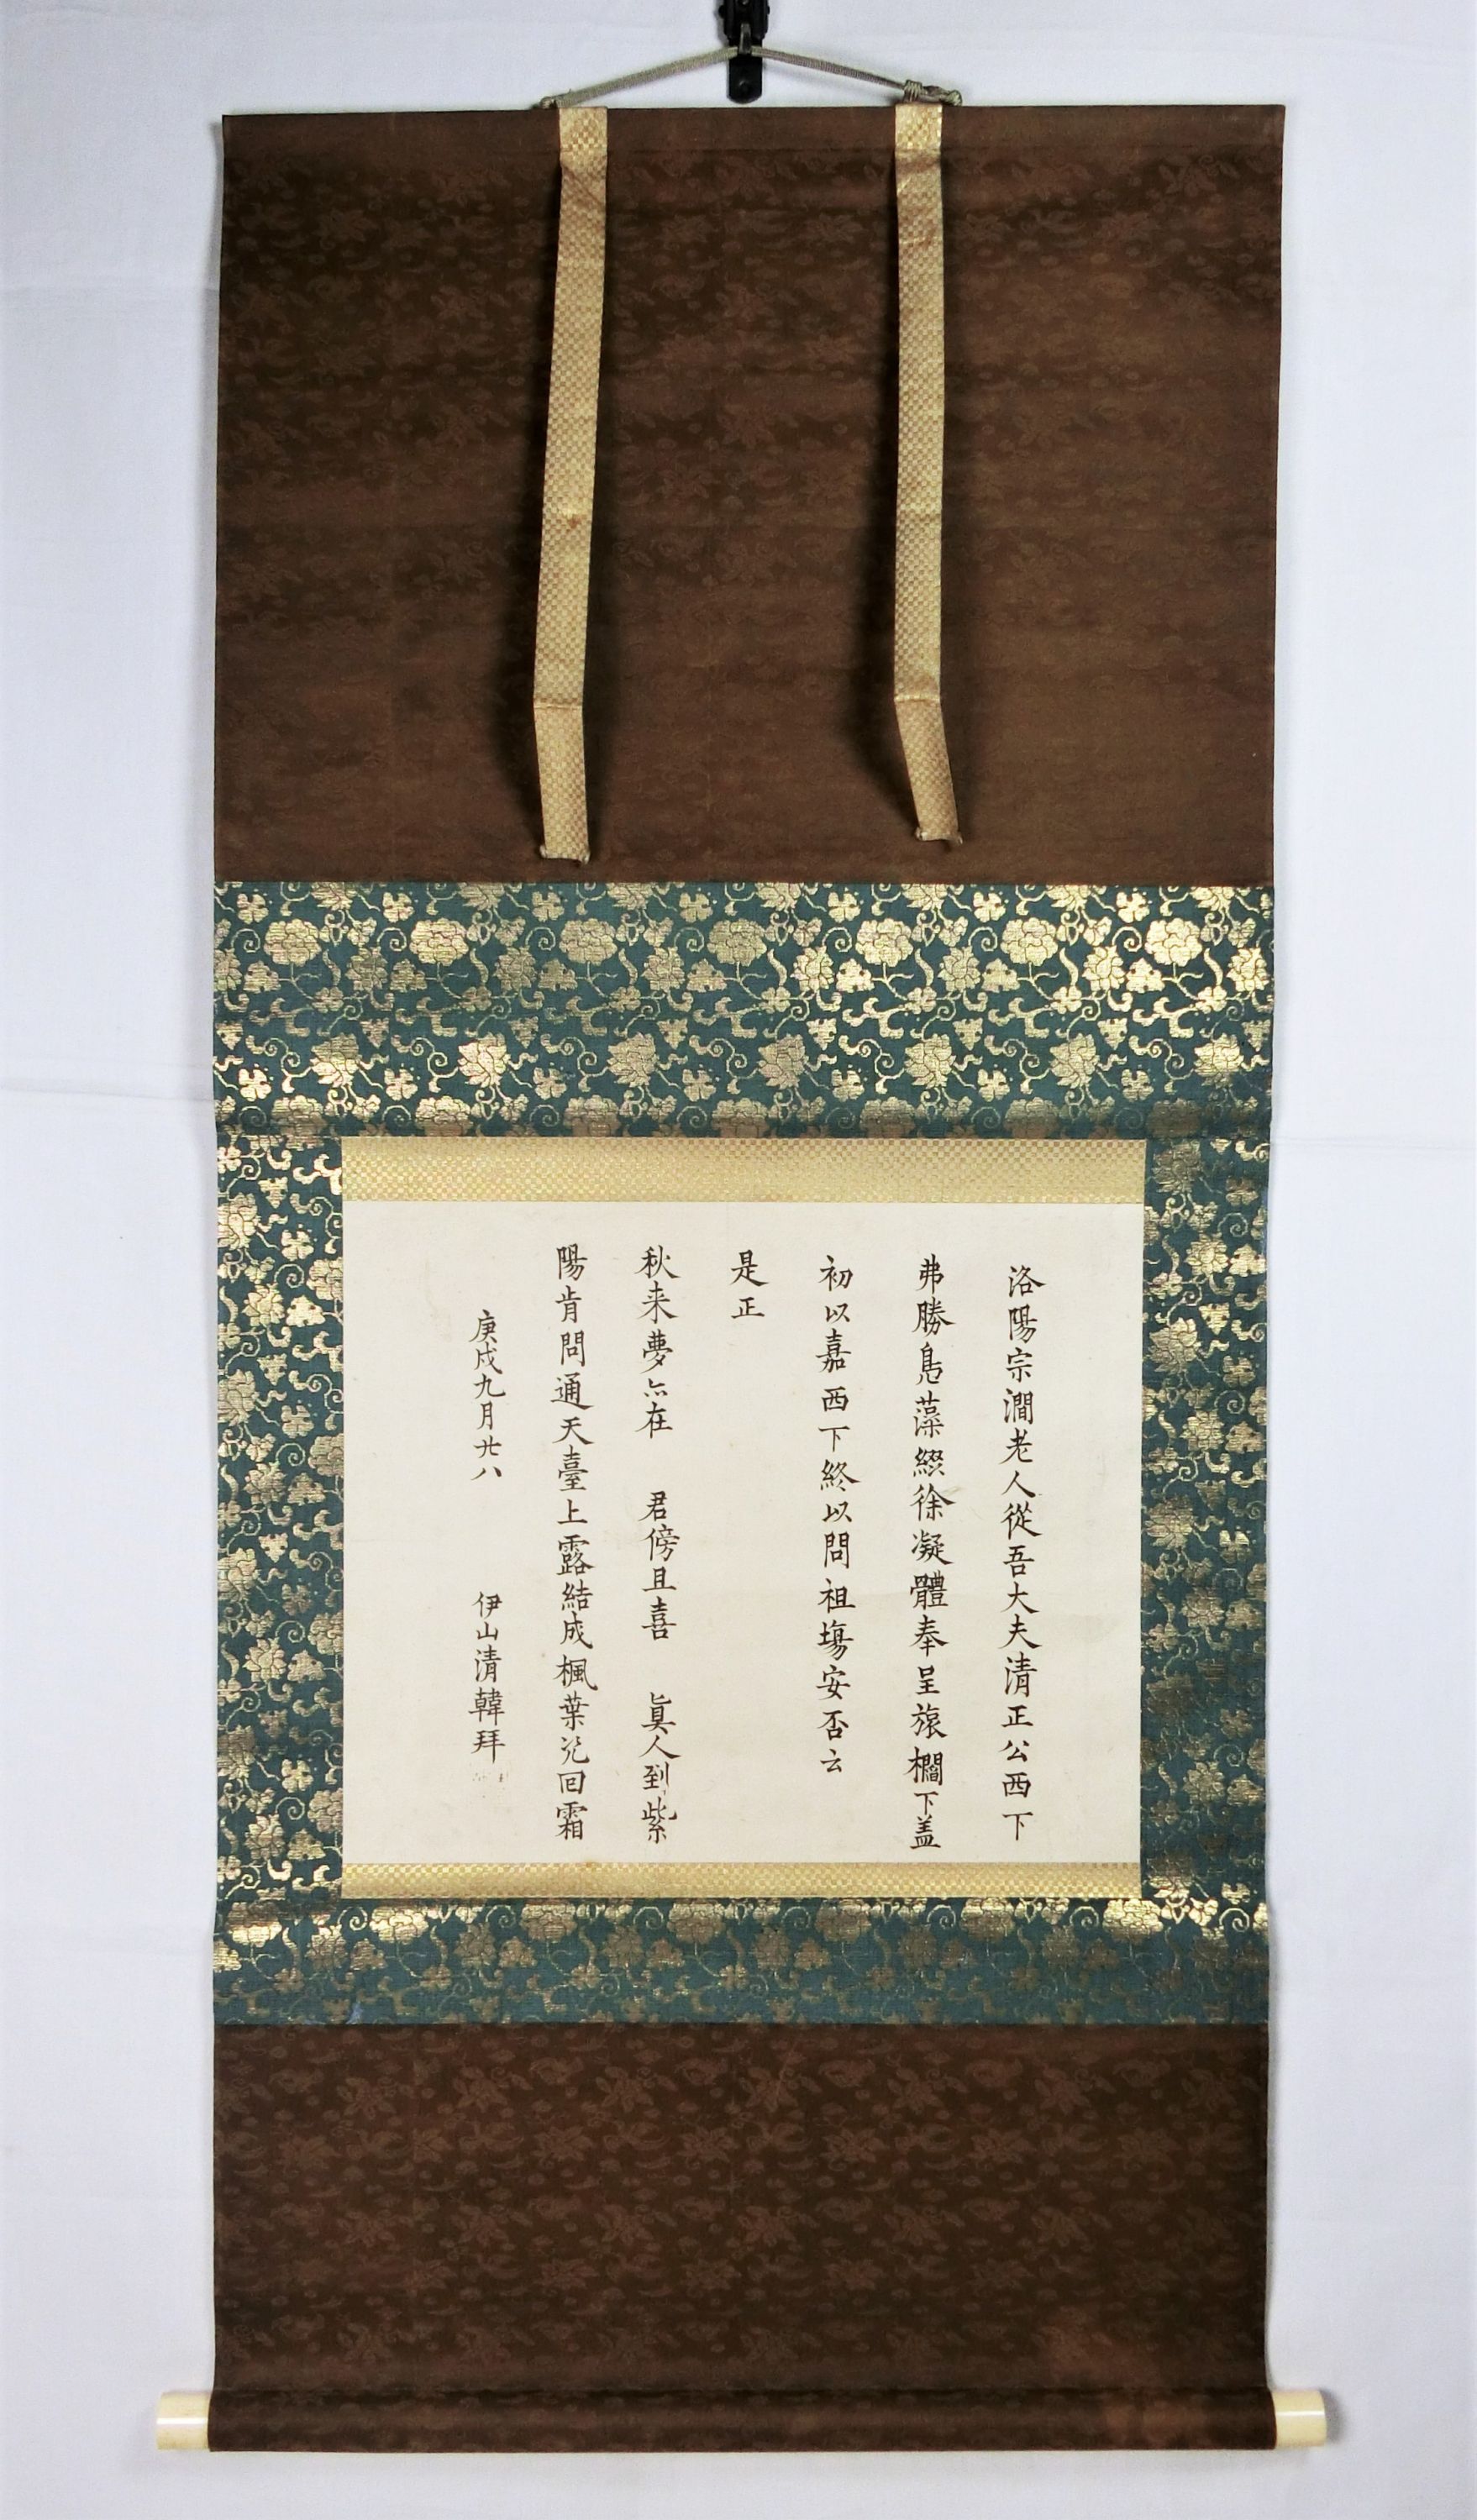 洛陽宗澗老人從吾大夫清正公西下
弗勝藻綴徐凝體奉呈旅櫩下盖
初以嘉西下終以問祖塲安否云
是正
秋来夢尓在 君傍且喜 眞人到紫
陽肯問通天臺上露結成楓葉幾回霜
庚戌九月廿八 伊山清韓拜